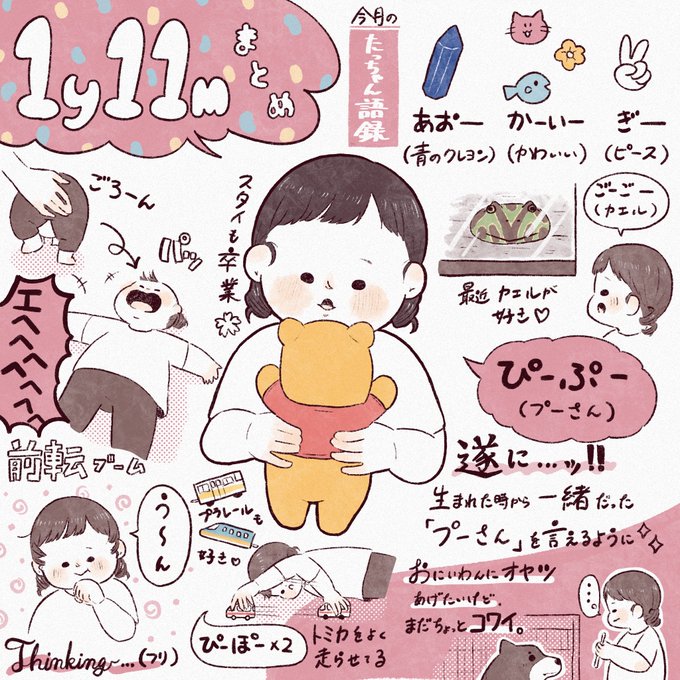 1y11m
まとめ
今月の
たっちゃん語録
あおー
(青のクレヨン)
かーいー
(かわいい)
ぎー
(ピース)
ごろーん
パッ
エヘヘヘヘヘヘ
前転ブーム
スタイも卒業
ごーごー
(カエル)
最近カエルが
好き♡
ぴーぷー
(プーさん)
遂に…ッ!!
生まれた時から一緒だった
「プーさん」を言えるように
う〜ん
Thinking〜…(フリ)
プラレールも
好き♡
ぴーぽー×2
トミカをよく
走らせてる
おにいわんにオヤツ
あげたいけど、
まだちょっとコワイ。
…